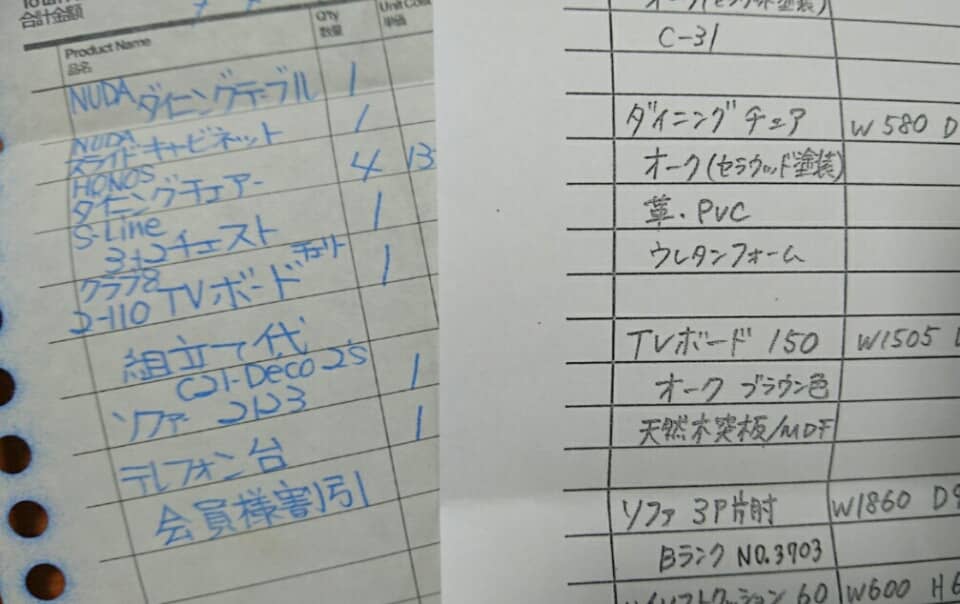 合計金額
Product Name
品名
Q'ty
数量
単価
NUDA ダイニングテーブル 1
NUDA
スライドキャビネット 1
HONOS
ダイニングチェアー 4 13
S-Line
3+2チェスト 1
クラフ8 チェリー
2-110 TVボード 1
組立て代
C21-Deco 2's
ソファー 2123 1
テレフォン台 1
会員様割引
オーク(セラウッド塗装)
C-31
ダイニングチェア W580 D
オーク(セラウッド塗装)
革・PVC
ウレタンフォーム
TVボード 150 W1505
オーク ブラウン色
天然木突板/MDF
ソファ 3P片肘 W1860 D9
Bランク NO.3703
ハイソフトクッション 60 W600 H6